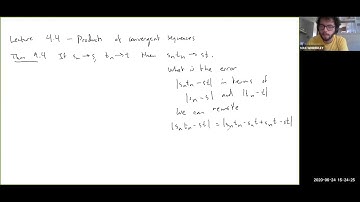 Lecture 4.4 – Products of convergent sequences
Thm 9.4 If sₙ→s, tₙ→t then sₙtₙ→st.
What is the error
|sₙtₙ-st| in terms of
|sₙ-s| and |tₙ-t|
We can rewrite
|sₙtₙ-st| = |sₙtₙ-sₙt+sₙt-st|
2020-06-24 15:24:25